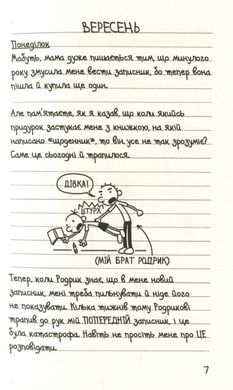 ВЕРЕСЕНЬ
Понеділок
Мабуть, мама дуже пишається тим, що минулого
року змусила мене вести записник, бо тепер вона
пішла й купила ще один.
Але пам'ятаєте, як я казав, що коли якийсь
придурок застукає мене з книжкою, на якій
написано «щоденник», то він усе не так зрозуміє?
Саме це сьогодні й трапилося.
ДІВКА!
ШТУРХ
(МІЙ БРАТ РОДРИК)
Тепер, коли Родрик знає, що в мене новий
записник, мені треба пильнувати й ніде його
не показувати. Кілька тижнів тому Родрикові
трапив до рук мій ПОПЕРЕДНІЙ записник, і це
була катастрофа. Навіть не просіть мене про ЦЕ
розповідати.
7